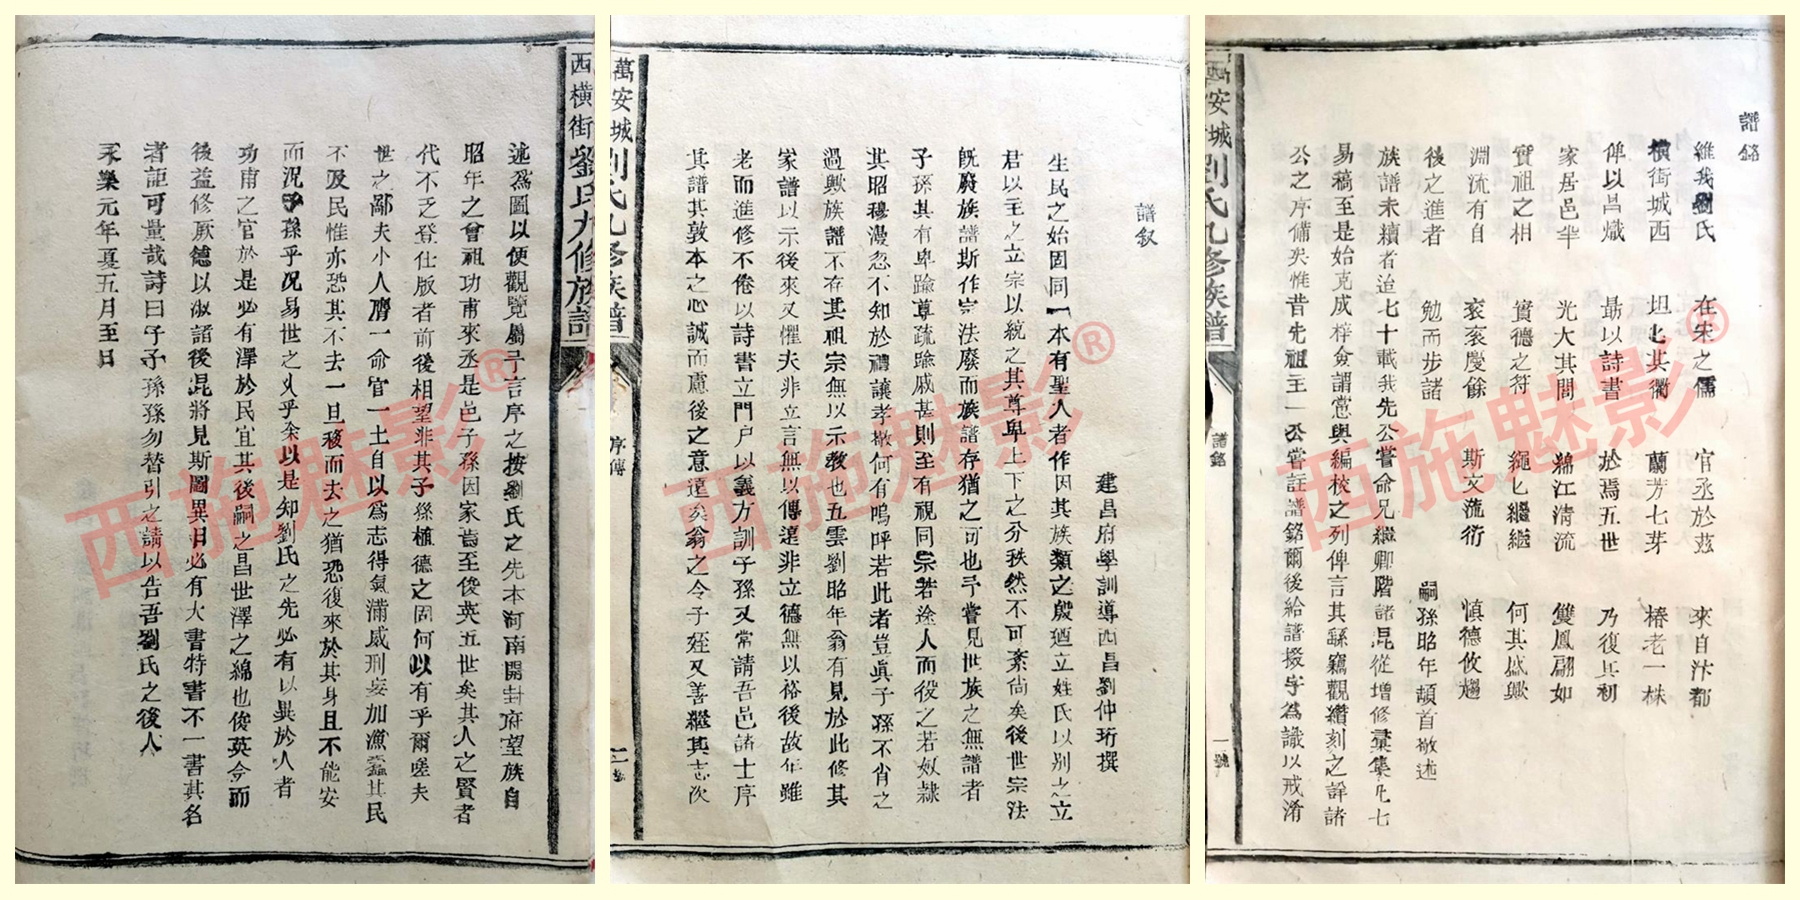 譜銘
維我劉氏 在宋之儒 官丞於茲 來自汴都
橫街城西 坦匕其衢 蘭芳七芽 椿老一株
俾以昌熾 最以詩書 於焉五世 乃復其初
家居邑半 光大其閭 鵝江清流 雙鳳翩如
實祖之相 實德之符 繩匕繼繼 何其盛歟
淵流有自 衮衮慶餘 斯文流衍 慎德攸趨
後之進者 勉而步諸
嗣孫昭年頓首敬述
族譜未續者迨七十載我先公嘗命兄繼卿階諸昆從增修彙集凡七
易稿至是始克成梓僉謂愈與編校之列俾言其繇竊觀纘刻之詳諸
公之序備矣惟昔先祖王一公嘗註譜銘爾後給譜掇字為識以戒淆
萬安城劉氏九修族譜
譜銘
一號
譜叙
建昌府學訓導西昌劉仲珩撰
生民之始固同一本有聖人者作因其族類之殷廼立姓氏以别之立
君以主之立宗以統之其尊卑上下之分秩然不可紊尙矣後世宗法
旣廢族譜斯作宗法廢而族譜存猶之可也予嘗見世族之無譜者
子孫其有卑踰尊疏踰戚甚則至有視同宗若途人而役之若奴隸
其昭穆漫忽不知於禮讓孝敬何有嗚呼若此者豈眞子孫不肖之
過歟族譜不存其祖宗無以示敎也五雲劉昭年翁有見於此修其
家譜以示後來又懼夫非立言無以傳遠非立德無以裕後故年雖
老而進修不倦以詩書立門戶以義方訓子孫又常請吾邑諸士序
其譜其敦本之心誠而慮後之意遠矣翁之令子姪又善繼其志次
萬安城劉氏九修族譜
序傳
述爲圖以便觀覽屬予言序之按劉氏之先本河南開封府望族自
昭年之曾祖功甫來丞是邑子孫因家焉至俊英五世矣其人之賢者
代不乏登仕版者前後相望非其子孫植德之固何以有乎爾嗟夫
世之鄙夫小人膺一命官一土自以爲志得氣滿威刑妄加漁蠹其民
不及民惟亦恐其不去一旦移而去之猶恐復來於其身且不能安
而況乎孫乎況易世之乆乎余以是知劉氏之先必有以異於人者
功甫之官於是必有澤於民宜其後嗣之昌世澤之綿也俊英令而
後益修厥德以淑諸後昆將見斯圖異日必有大書特書不一書其名
者詎可量哉詩曰子子孫孫勿替引之請以告吾劉氏之後人
永樂元年夏五月至日
西橫街劉氏九修族譜